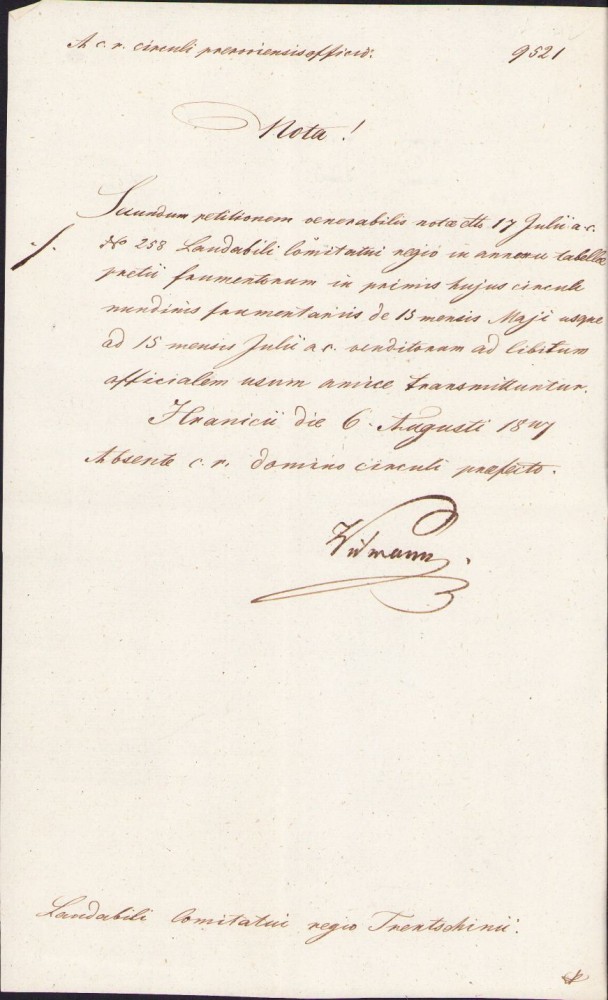 A c. r. circuli preroviensis officio. 9521
Nota!
Secundum petitionem venerabilis notae ddto 17 Julii a. c.
No 258 Laudabili Comitatui regio in annexu tabellae
pretii frumentorum in primis hujus circuli
nundinis frumentariis de 15 mensis Maji usque
ad 15 mensis Julii a c. venditorum ad libitum
officialem usum amice transmittuntur.
Hranicii die 6. Augusti 1847
Absente c. r. domino circuli praefecto.
Laudabili Comitatui regio Trentschinii.